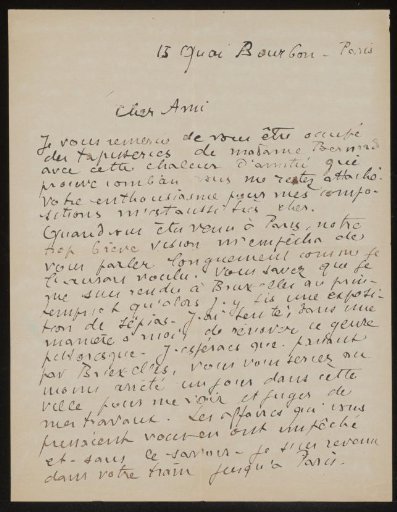 15 Quai Bourbon - Paris
Cher Ami
Je vous remercie de vous être occupé
des tapisseries de madame Bernard
avec cette chaleur d'amitié qui
prouve combien vous me restez attaché.
Votre enthousiasme pour mes compo-
sitions m'est aussi très cher.
Quand vous êtes venu à Paris, notre
trop brève vision m'empêcha de
vous parler longuement comme je
l'aurais voulu. Vous savez que je
me suis rendu à Bruxelles au prin-
temps et qu'alors j'y fis une exposi-
tion de sépias. J'ai tenté, dans une
manière à moi de rénover ce genre
pittoresque. J'espérais que passant
par Bruxelles, vous vous seriez au
moins arrêté un jour dans cette
ville pour me voir et juger de
mes travaux. Les affaires qui vous
pressaient vous en ont empêché
et - sans le savoir - je suis revenu
dans votre train jusqu'à Paris.